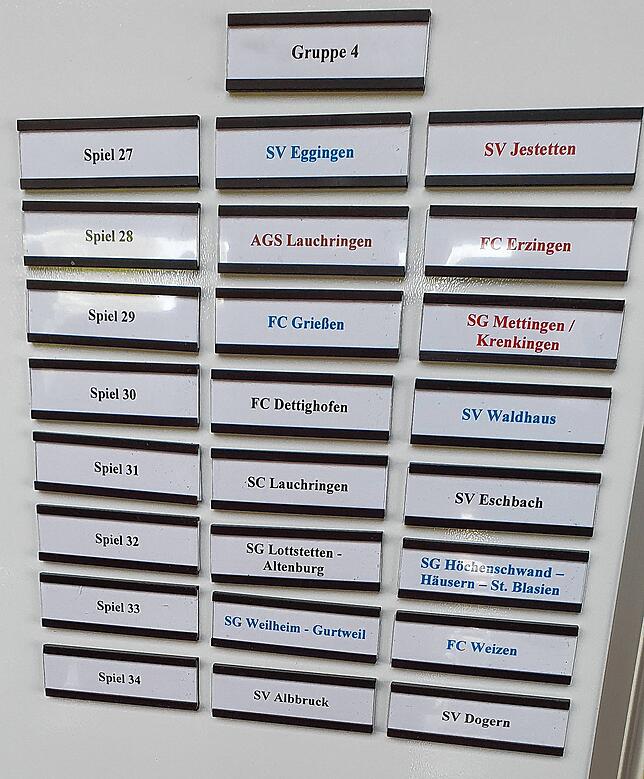 Gruppe 4
Spiel 27
SV Eggingen
SV Jestetten
Spiel 28
AGS Lauchringen
FC Erzingen
Spiel 29
FC Grießen
SG Mettingen /
Krenkingen
Spiel 30
FC Dettighofen
SV Waldhaus
Spiel 31
SC Lauchringen
SV Eschbach
Spiel 32
SG Lottstetten -
Altenburg
SG Höchenschwand –
Häusern – St. Blasien
Spiel 33
SG Weilheim - Gurtweil
FC Weizen
Spiel 34
SV Albbruck
SV Dogern